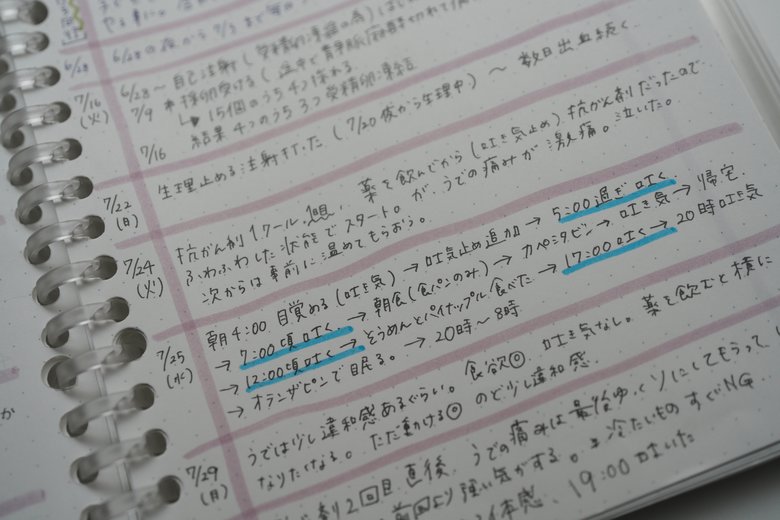 6/28
6/28の夜から7/3まで毎
7/16
(火)
6/28〜 自己注射(受精卵凍結の為)はじ
7/9 *採卵受ける(途中で
↳ 15個のうち4つ採れる
結果4つのうち3つ受精卵凍結
7/16 生理止める注射打った(7/20夜から生理中)〜 数日出血続く
7/22
(月)
抗がん剤1クール1回目、薬を飲んでから(吐き気止め)抗がん剤だったので
ふわふわした状態でスタート。が、うでの痛みが激痛。泣いた。
次からは事前に温めてもらおう。
7/24
(火)
朝4:00 目覚める(吐き気)→吐気止め追加→5:00過ぎ吐く
→7:00頃吐く→朝食(食パンのみ)→カペシタビン→吐き気→帰宅
→12:00頃吐く→そうめんとパイナップル食べた→17:00吐く→20時吐き気
→オランザピンで眠る。→20時〜8時
7/25
(水)
うでは少し違和感あるぐらい。食欲◎ 吐き気なし。薬を飲むと横に
なりたくなる。ただ動ける◎ のど少し違和感。
7/29
(月)
剤2回目 直後、うでの痛みは最後ゆっくりにしてもらって、
前回より強い気がする。* 冷たいものすぐNG
体感、19:00 吐いた